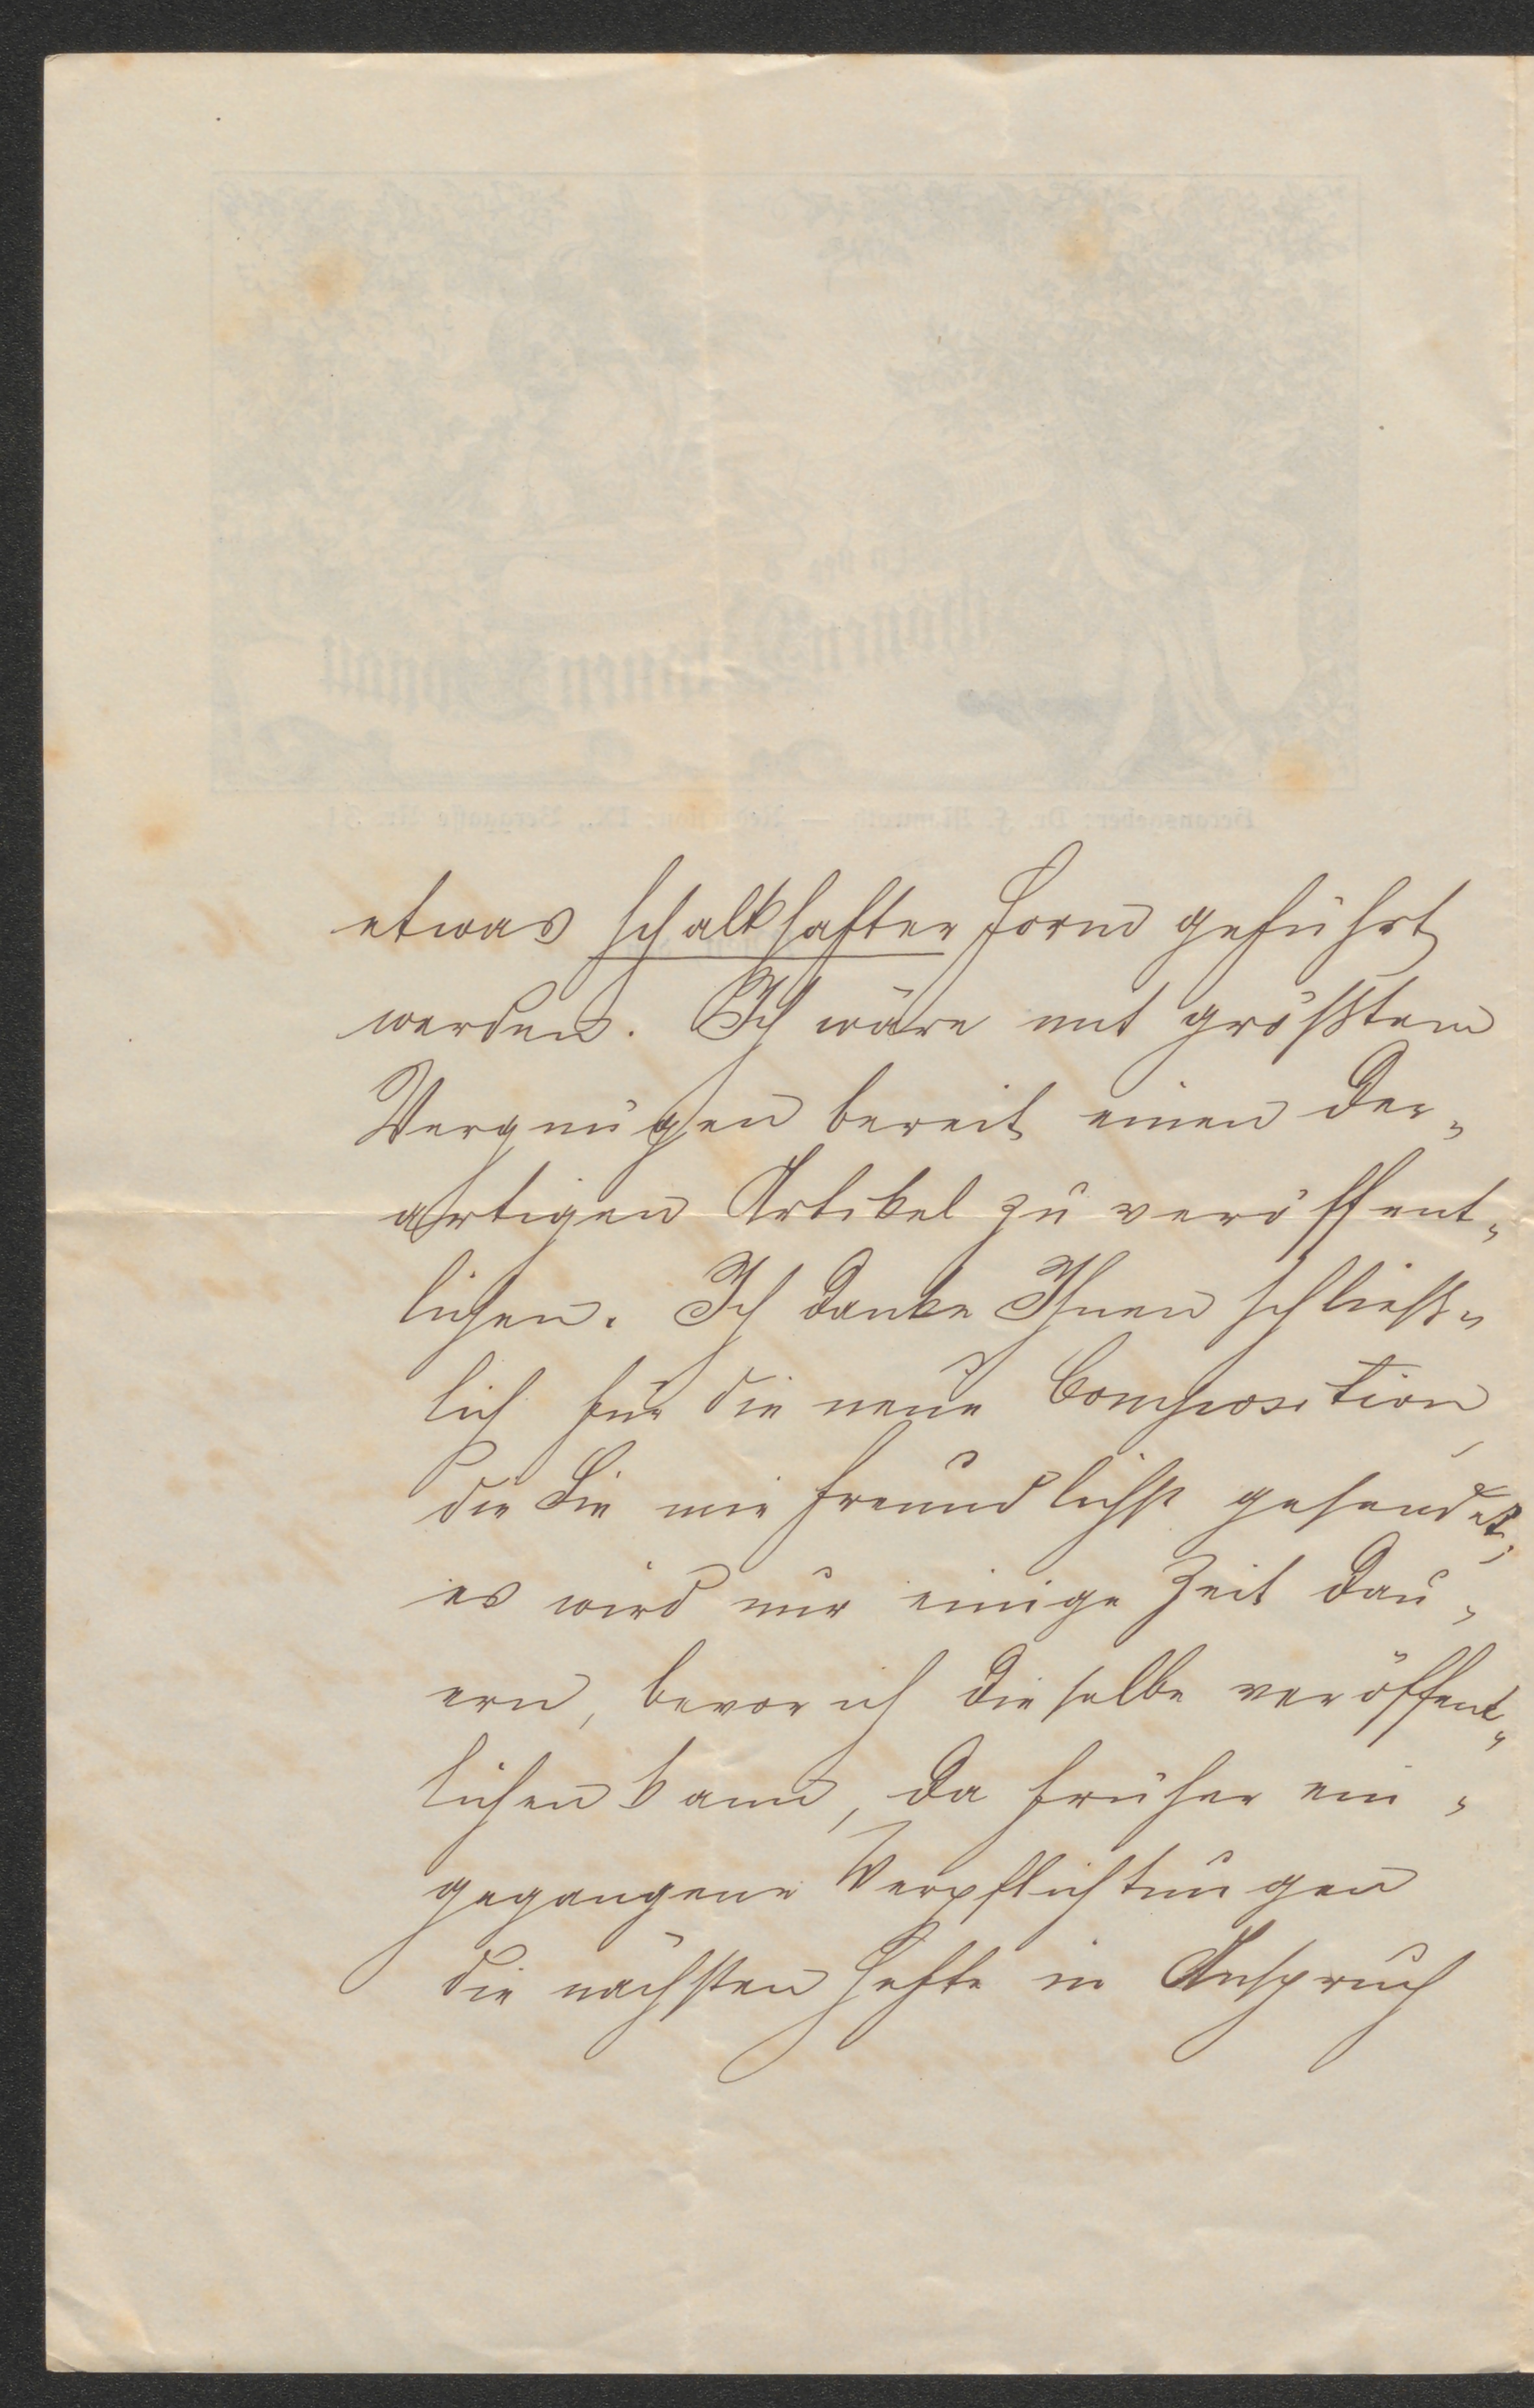 etwas schalkhafter Form geführt
werden. Ich wäre mit größtem
Vergnügen bereit einen der„
artigen Artikel zu veröffent„
lichen. Ich danke Ihnen schließ„
lich für die neue Composition,
die Sie mir freundlichst gesendet;
es wird nur einige Zeit dau„
ern, bevor ich dieselbe veröffent„
lichen kann, da früher ein„
gegangene Verpflichtungen
die nächsten Hefte in Anspruch